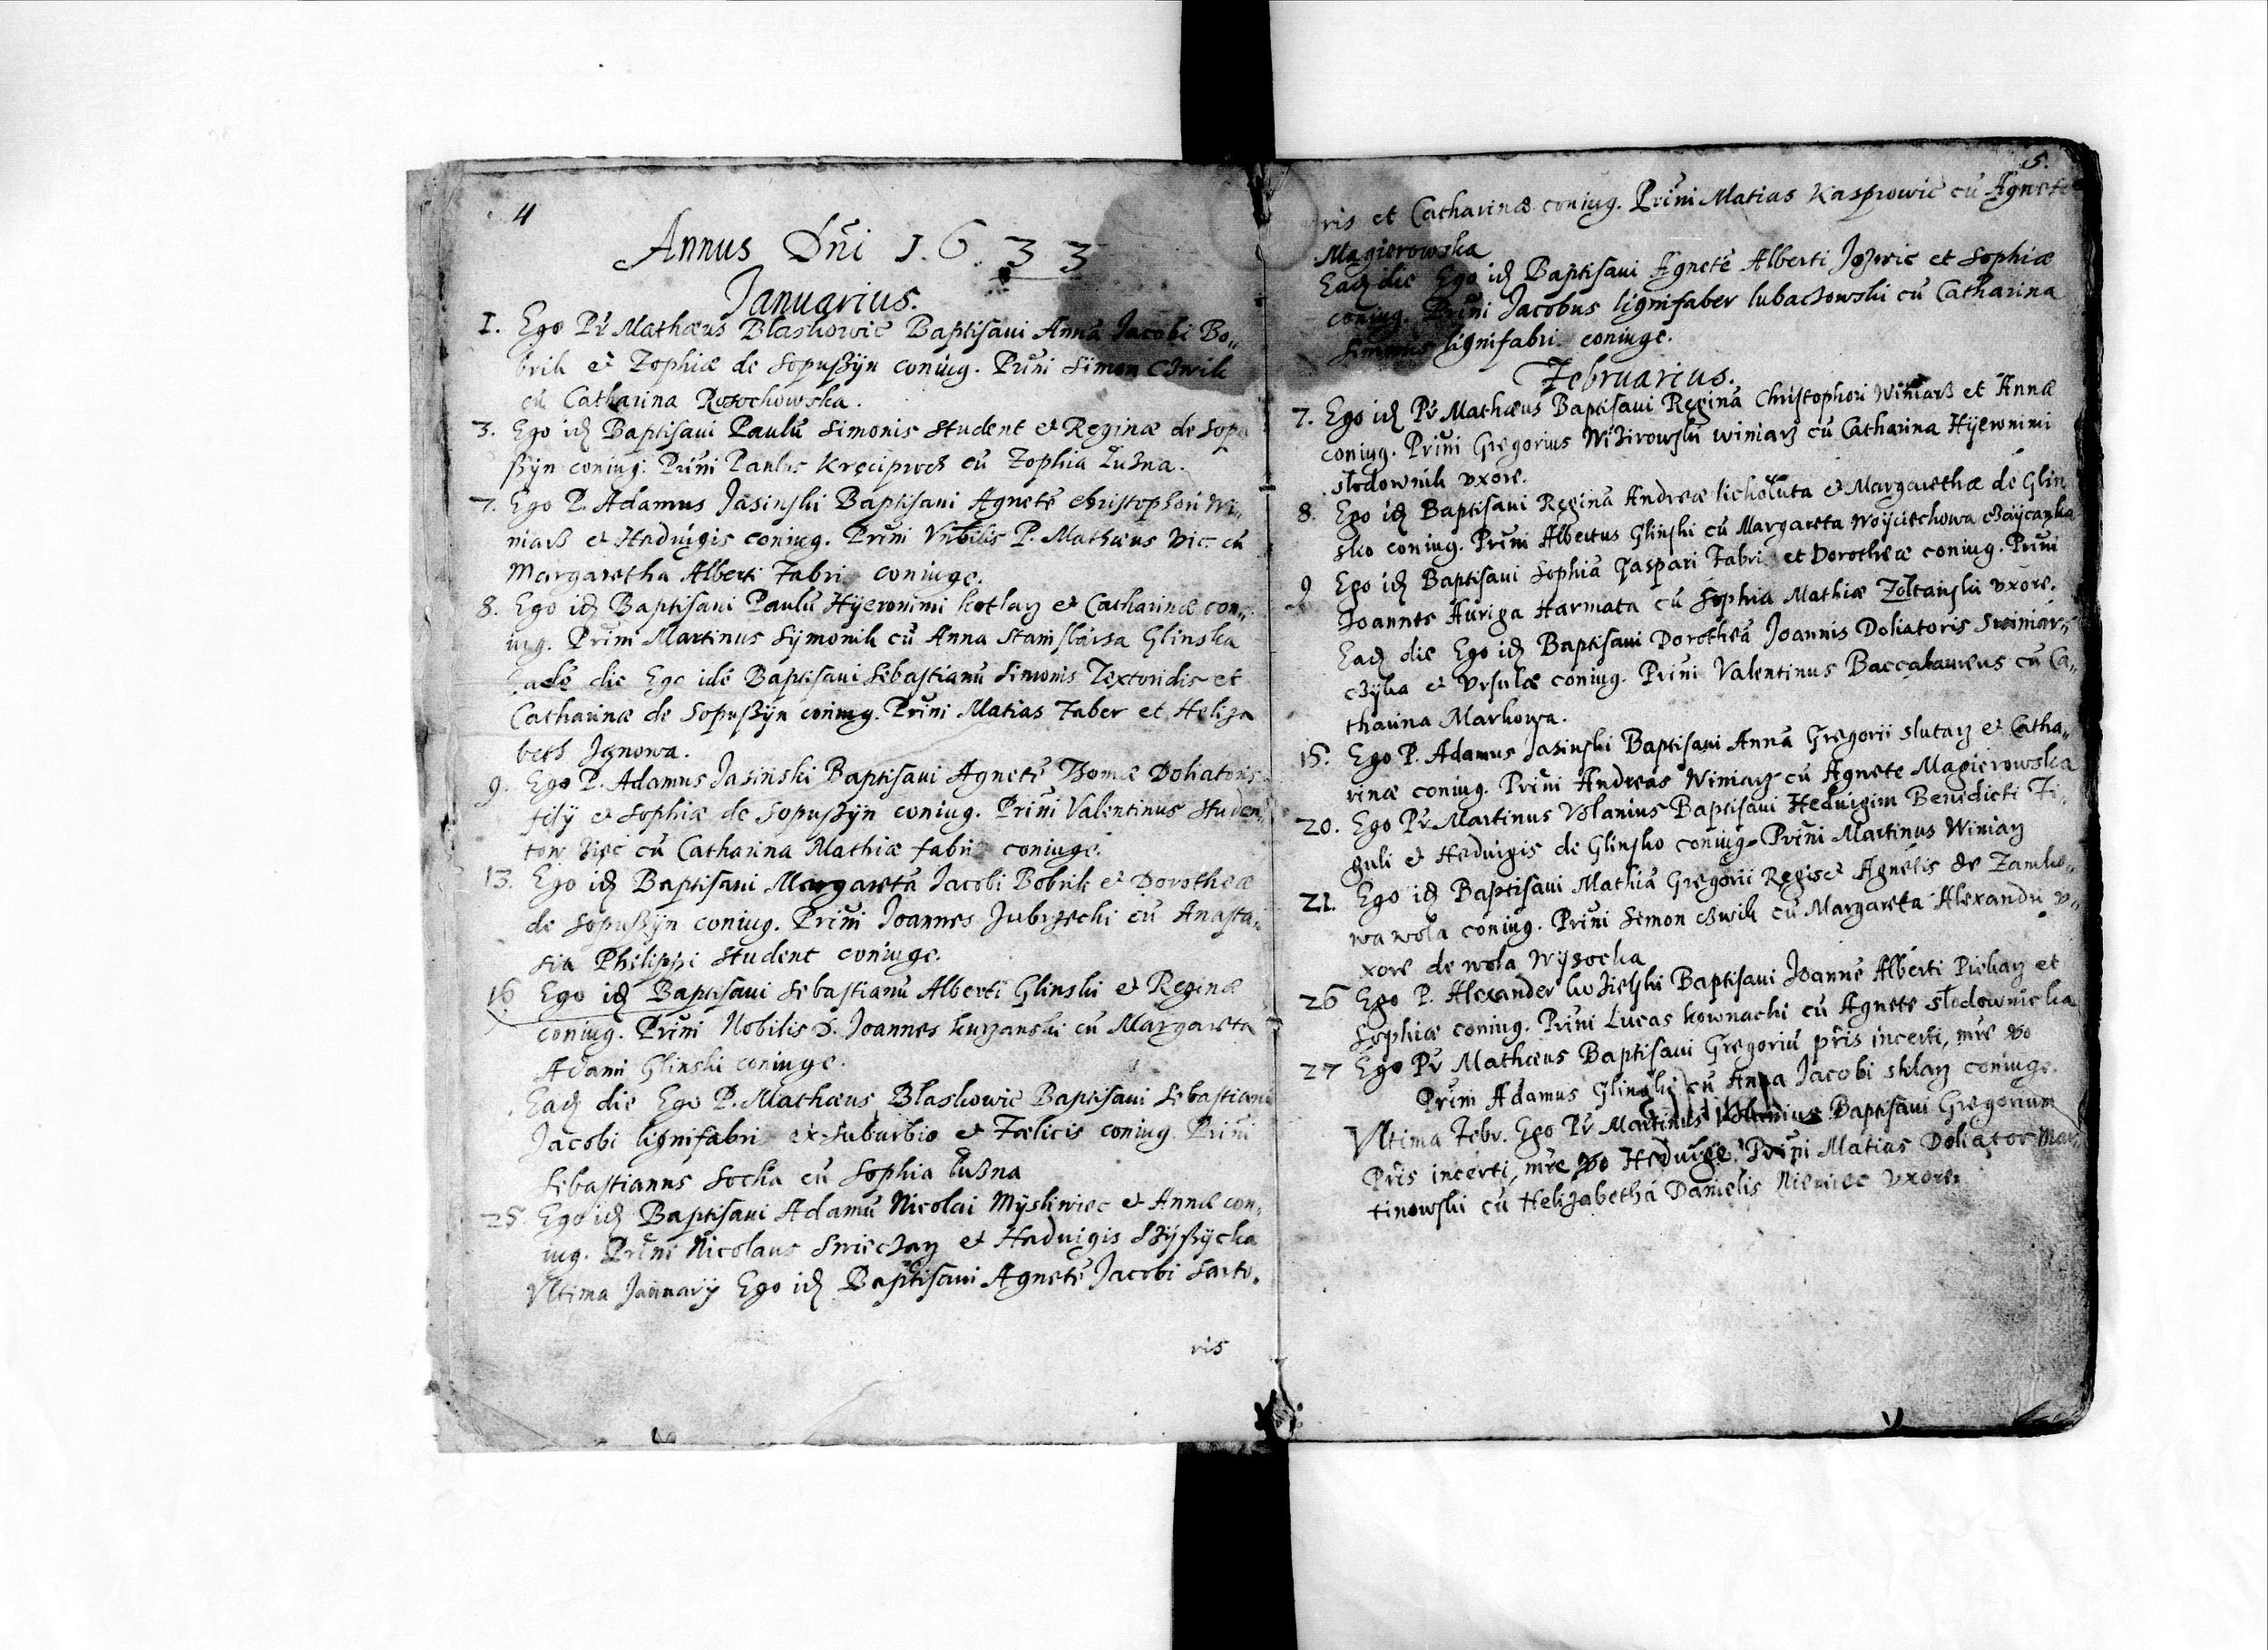 4
Annus Dñi 1.6.33
Januarius.
1. Ego Pr Mathæus Blaskowic Baptisaui Annā Jacobi Bo„
brik et Zophiæ de Sopußÿn coniug. Prini Simon Cżwik
cū Catharina Rosochowska.
3. Ego idē Baptisaui Paulū Simonis Student et Reginæ de Sopu
ßÿn coniug. Prini Paulus cū Zophia Łużna.
7. Ego P. Adamus Jasinski Baptisaui Agnetē Christophori Wi„
niarß et Haduigis coniug. Prini Vnbilis P. Mathæus Vic: cū
Margaretha Alberti Fabri coniuge.
8. Ego idē Baptisaui Paulū Hÿeronimi kotlarz et Catharinæ con„
iug. Prini Martinus Sÿmonik cū Anna Glinska
Eadē die Ego idē Baptisaui Sebastianū Simonis Textoridis et
Catharinæ de Sopußÿn coniug. Prini Matias Faber et Heliza
beth Ignowa.
9. Ego P. Adamus Jasinski Baptisaui Agnetē Thomæ Doliatoris
filÿ et Sophiæ de Sopußÿn coniug. Prini Valentinus Studen„
tow żiec cū Catharina Mathiæ fabri coniuge.
13. Ego idē Baptisaui Margaretā Jacobi Bobrik et Dorotheæ
de Sopußÿn coniug. Prini Joannes Jubrzecki cū Anasta„
sia Philippi Student coniuge.
16 Ego idē Baptisaui Sebastianū Alberti Glinski et Reginæ
coniug. Prini Nobilis D. Joannes kurzanski cū Margareta
Adami Glinski coniuge.
Eadē die Ego P. Mathæus Blaskowic Baptisaui Sebastianū
Jacobi lignifabri ex Suburbio et Fælicis coniug. Prini
Sebastianus Socha cū Sophia Łużna
25. Ego idē Baptisaui Adamū Nicolai Mÿsliwiec et Annæ con„
iug. Prini Nicolaus Swieczarz et Haduigis
Vltima Januarÿ Ego idē Baptisaui Agnetē Jacobi Sarto„
ris
5.
ris et Catharinæ coniug. Prini Matias Kasprowic cū Agnete
Magierowska
Eadē die Ego idē Baptisaui Agnetē Alberti et Sophiæ
coniug. Prini Jacobus lignifaber lubaczowski cū Catharina
Simonis lignifabri coniuge.
Februarius.
7. Ego idē Pr Mathæus Baptisaui Reginā Christophori Winiarß et Annæ
coniug. Prini Gregorius winiarz cū Catharina Hÿeronimi
słodownik vxore.
8. Ego idē Baptisaui Reginā Andreæ lichołuta et Margarethæ de Glin
sko coniug. Prini Albertus Glinski cū Margareta Woÿciechowa
9 Ego idē Baptisaui Sophiā Gaspari Fabri et Dorotheæ coniug. Prini
Joannes Auriga Harmata cū Sophia Mathiæ Zołtanski vxore.
Eadē die Ego idē Baptisaui Dorotheā Joannis Doliatoris Swiniar„
czÿka et Vrsulæ coniug. Prini Valentinus Baccalaureus cū Ca„
tharina Markowa.
15. Ego P. Adamus Jasinski Baptisaui Annā Gregorii slutarz et Catha„
rinæ coniug. Prini Andreas Winiarz cū Agnete Magierowska
20. Ego Pr Martinus Volanius Baptisaui Heduigim Benedicti Fi„
guli et Heduigis de Glinsko coniug. Prini Martinus Winiarz
21. Ego idē Baptisaui Mathiā Gregorii Regis et Agnetis de Zamko„
wa wola coniug. Prini Simon cżwik cū Margareta Alexandri v„
xore de wola Wÿsocka
26 Ego P. Alexander Baptisaui Joannē Alberti Piekarz et
Sophiæ coniug. Prini Lucas kownacki cū Agnete słodownicka
27 Ego Pr Mathæus Baptisaui Gregoriū pris incerti, mre vo
Prini Adamus Glinski cū Anna Jacobi sklarz coniuge.
Vltima Febr. Ego Pr Martinus Volanius Baptisaui Gregorium
Pris incerti, mre vo Heduige. Prini Matias Doliator Mar„
tinowski cū Helizabetha Danielis Niemiec vxore.